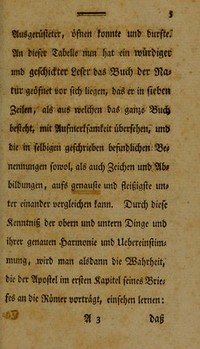 5
Ausgerüsteter, öfnen konnte und durfte.
An dieser Tabelle nun hat ein würdiger
und geschickter Leser das Buch der Na-
tur geöfnet vor sich liegen, das er in sieben
Zeilen, als aus welchen das ganze Buch
besteht, mit Aufmerksamkeit übersehen, und
die in selbigen geschrieben befindlichen Be-
nennungen sowol, als auch Zeichen und Ab-
bildungen, aufs genauste und fleißigste un-
ter einander vergleichen kann. Durch diese
Kenntniß der obern und untern Dinge und
ihrer genauen Harmonie und Uebereinstim-
mung, wird man alsdann die Wahrheit,
die der Apostel im ersten Kapitel seines Brie-
fes an die Römer vorträgt, einsehen lernen:
A 3 daß